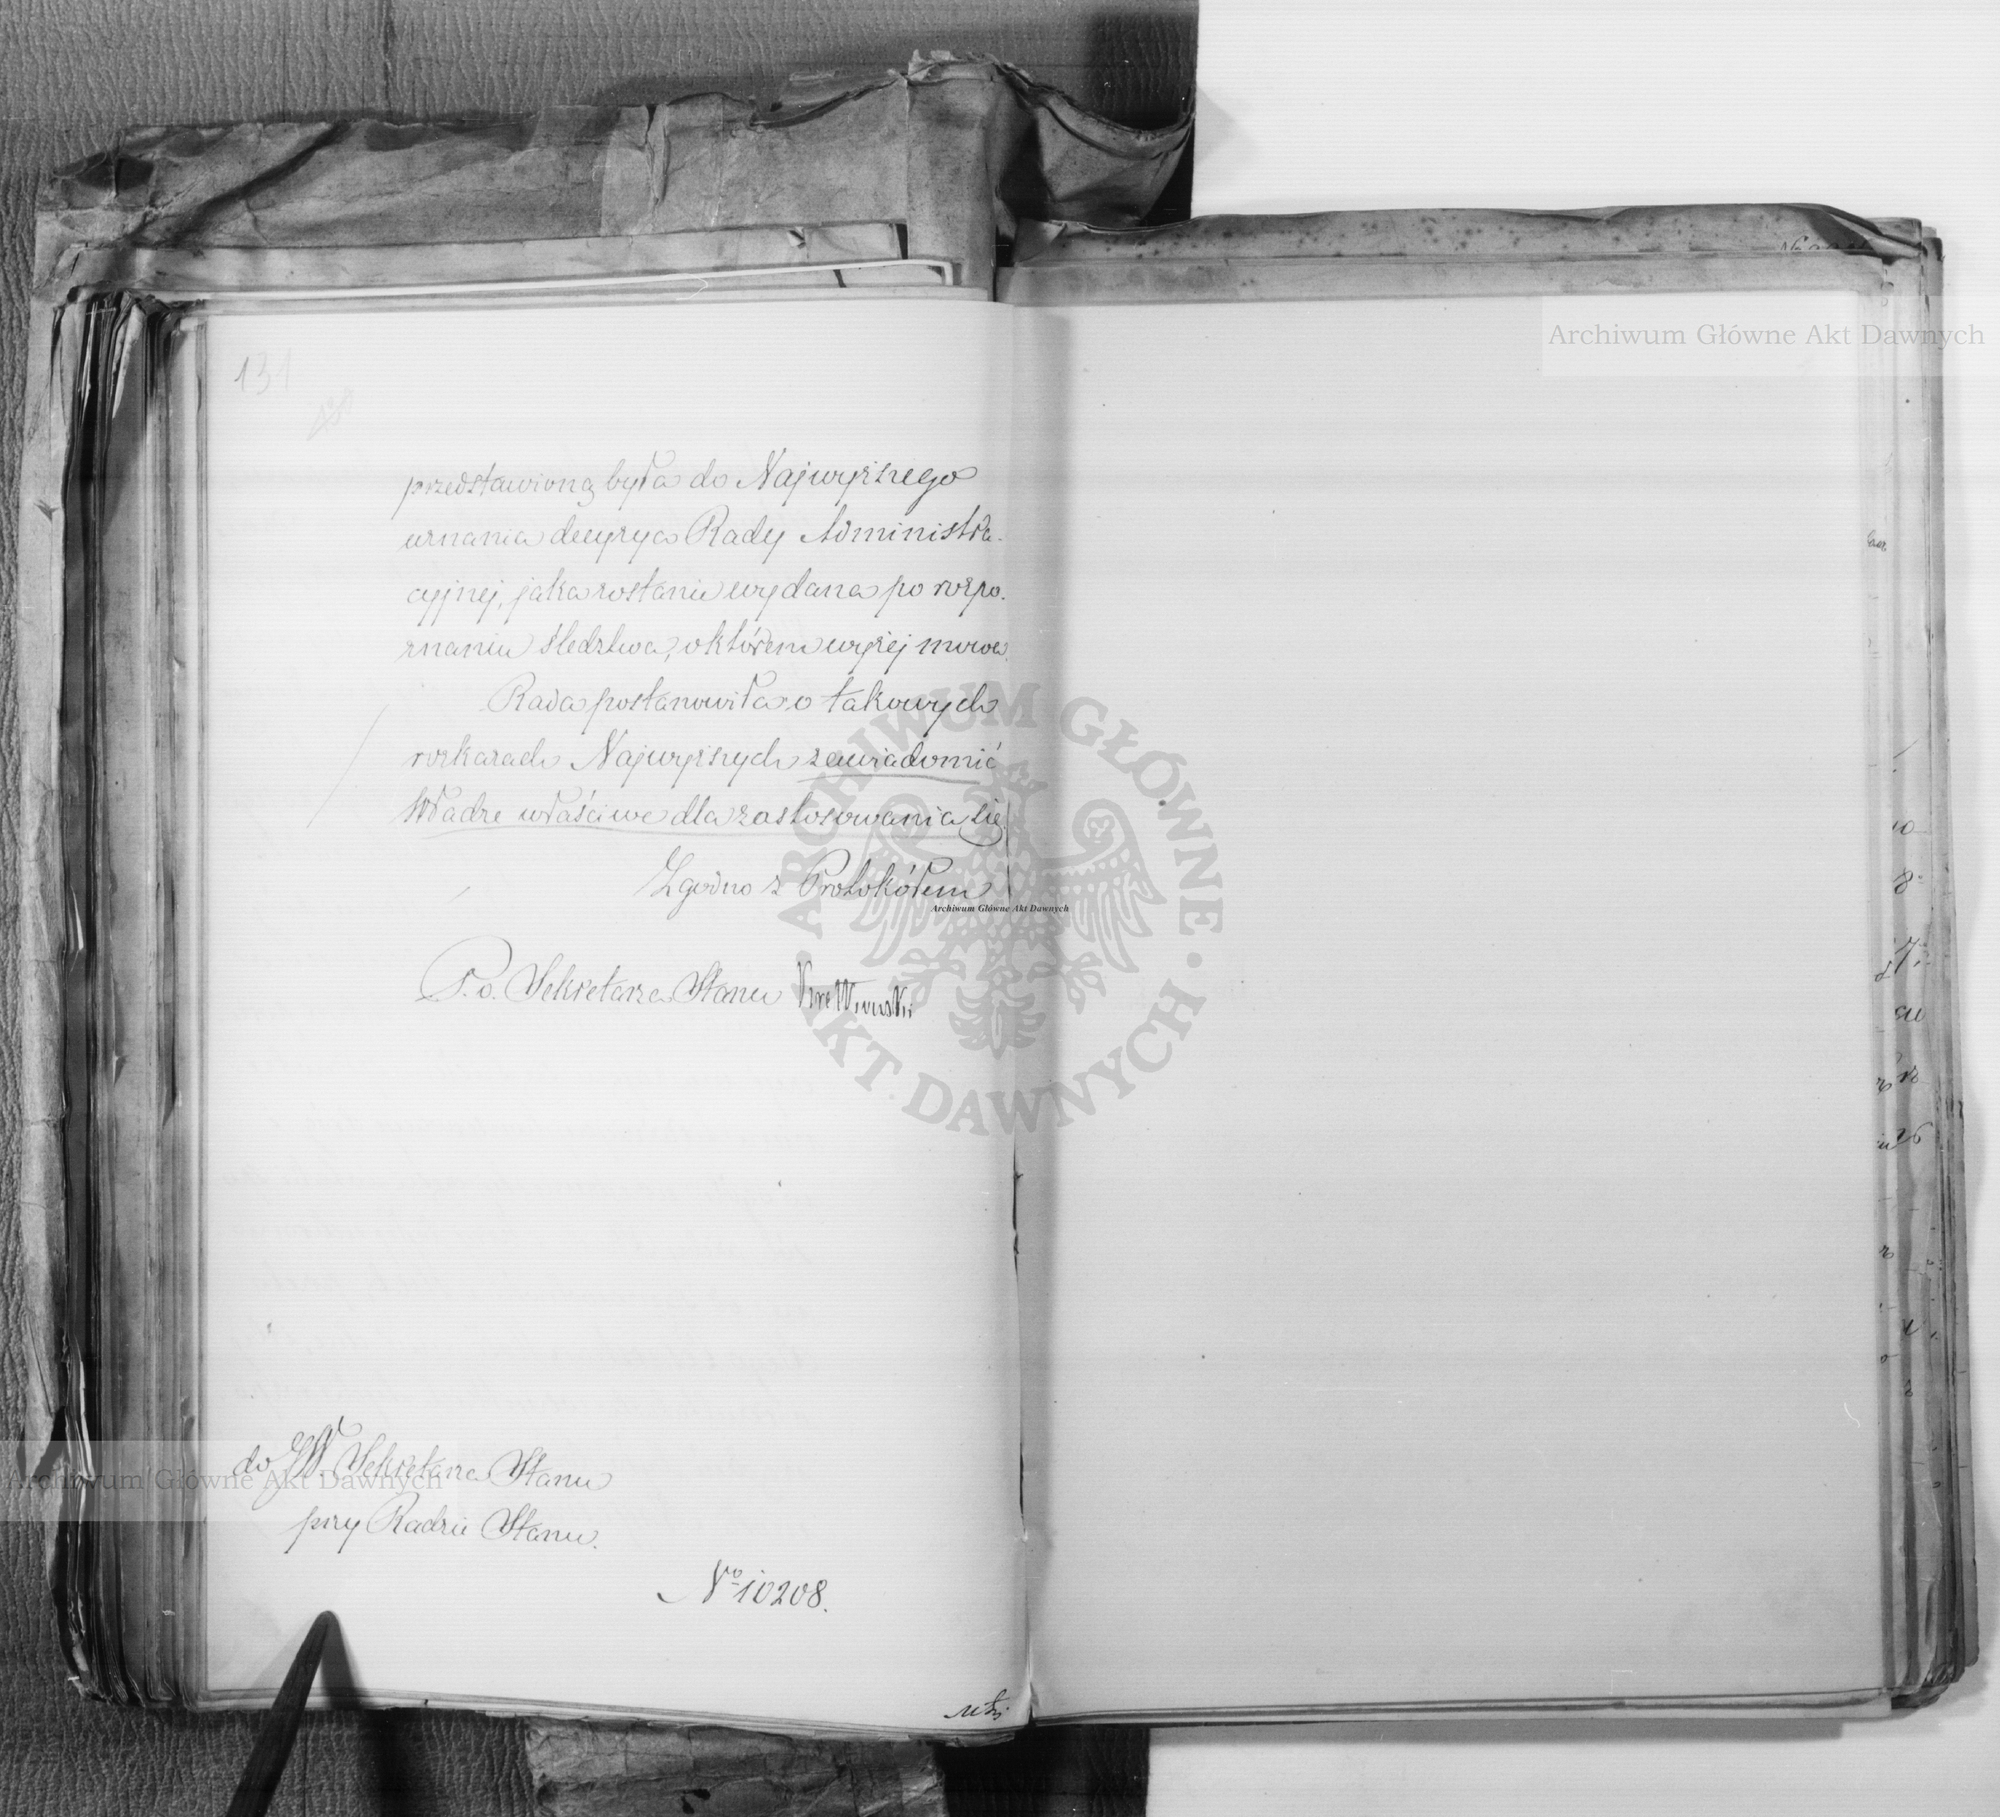 131
przedstawioną była do Najwyższego
uznania decyzya Rady Administra-
cyjnej, jaka zostanie wydana po rozpo-
znaniu śledztwa, o którem wyżej mowa.
Rada postanowiła o takowych
rozkazach Najwyższych zawiadomić
Władze właściwe dla zastosowania się
Zgodno z Protokółem
P. o. Sekretarza Stanu
do JW. Sekretarza Stanu
przy Radzie Stanu.
No 10208.
Archiwum Główne Akt Dawnych
ARCHIWUM GŁÓWNE AKT DAWNYCH
Archiwum Główne Akt Dawnych
Archiwum Główne Akt Dawnych